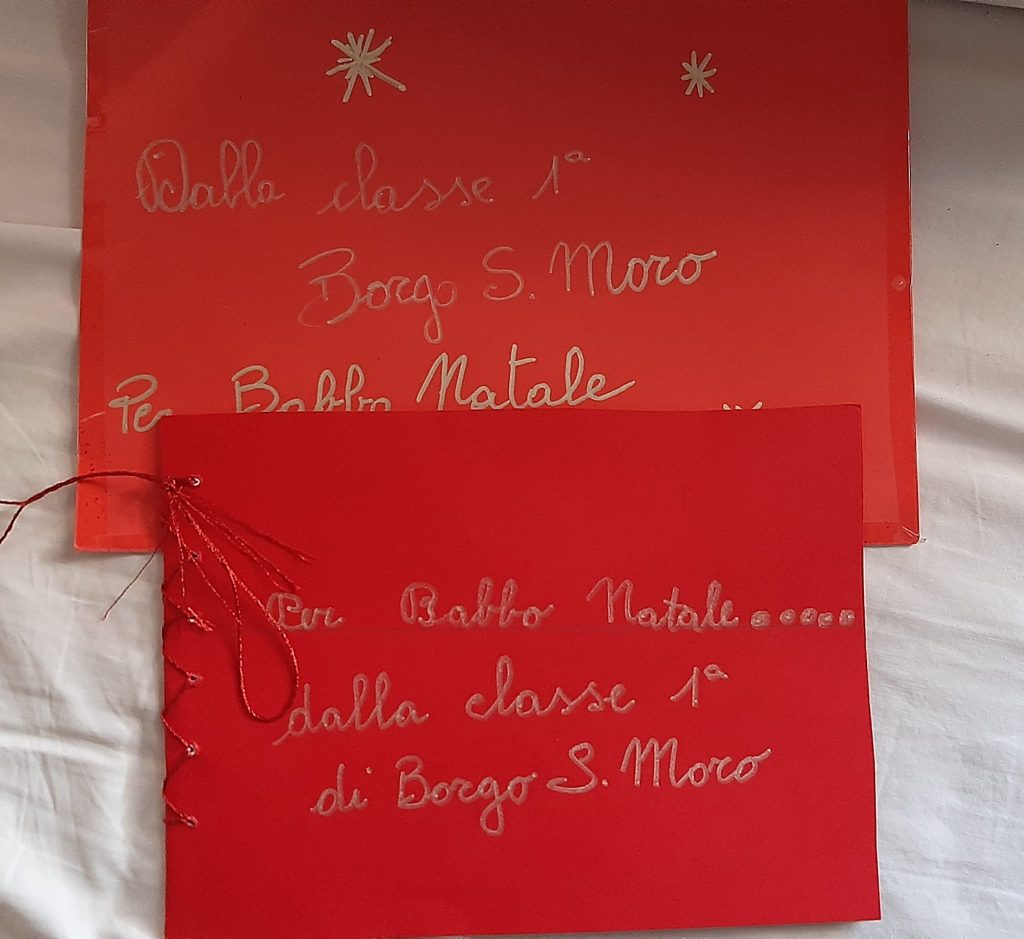 Dalla classe 1ª
Borgo S. Moro
Per Babbo Natale
Per Babbo Natale.....
dalla classe 1ª
di Borgo S. Moro